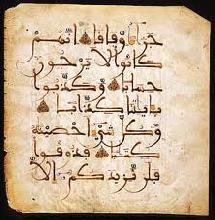 جَزَآءً وِفَاقًا إِنَّهُمْ
كَانُوا لَا يَرْجُونَ
حِسَابًا وَكَذَّبُوا
بِـَٔايَٰتِنَا كِذَّابًا
وَكُلَّ شَىْءٍ أَحْصَيْنَٰهُ
كِتَٰبًا فَذُوقُوا
فَلَن نَّزِيدَكُمْ إِلَّا